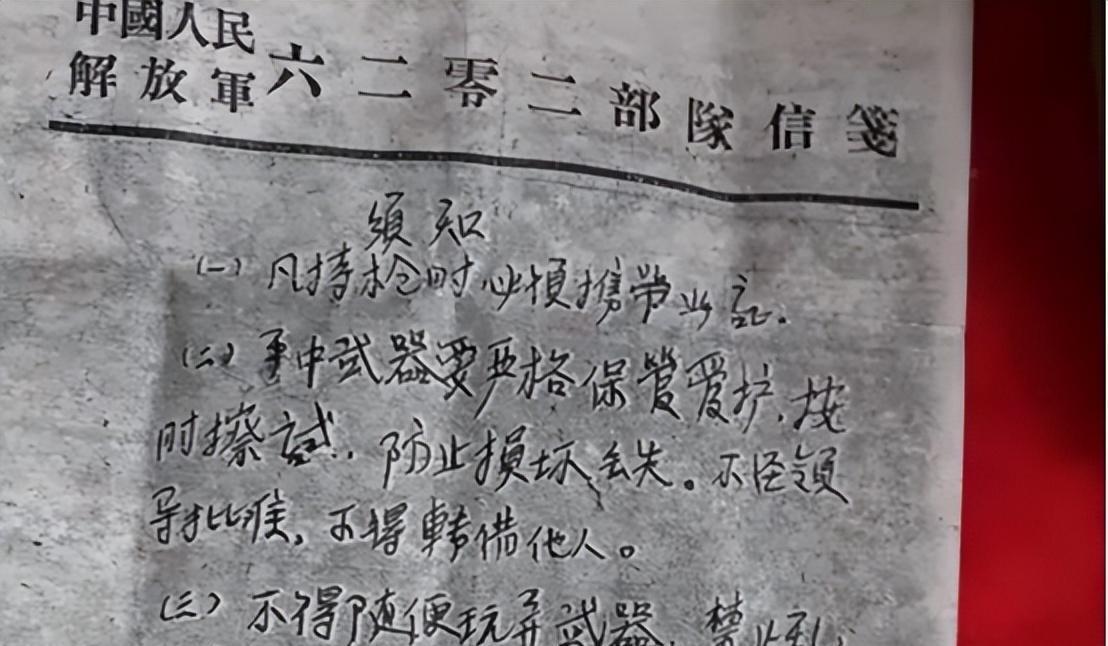 中國人民
解放軍六二零二部隊信箋
須知
(一)凡持枪时必須携带此証.
(二)手中武器要严格保管爱护,按
时擦試,防止損坏丢失。不经領
导批准,不得轉借他人。
(三)不得随便玩弄武器,禁止